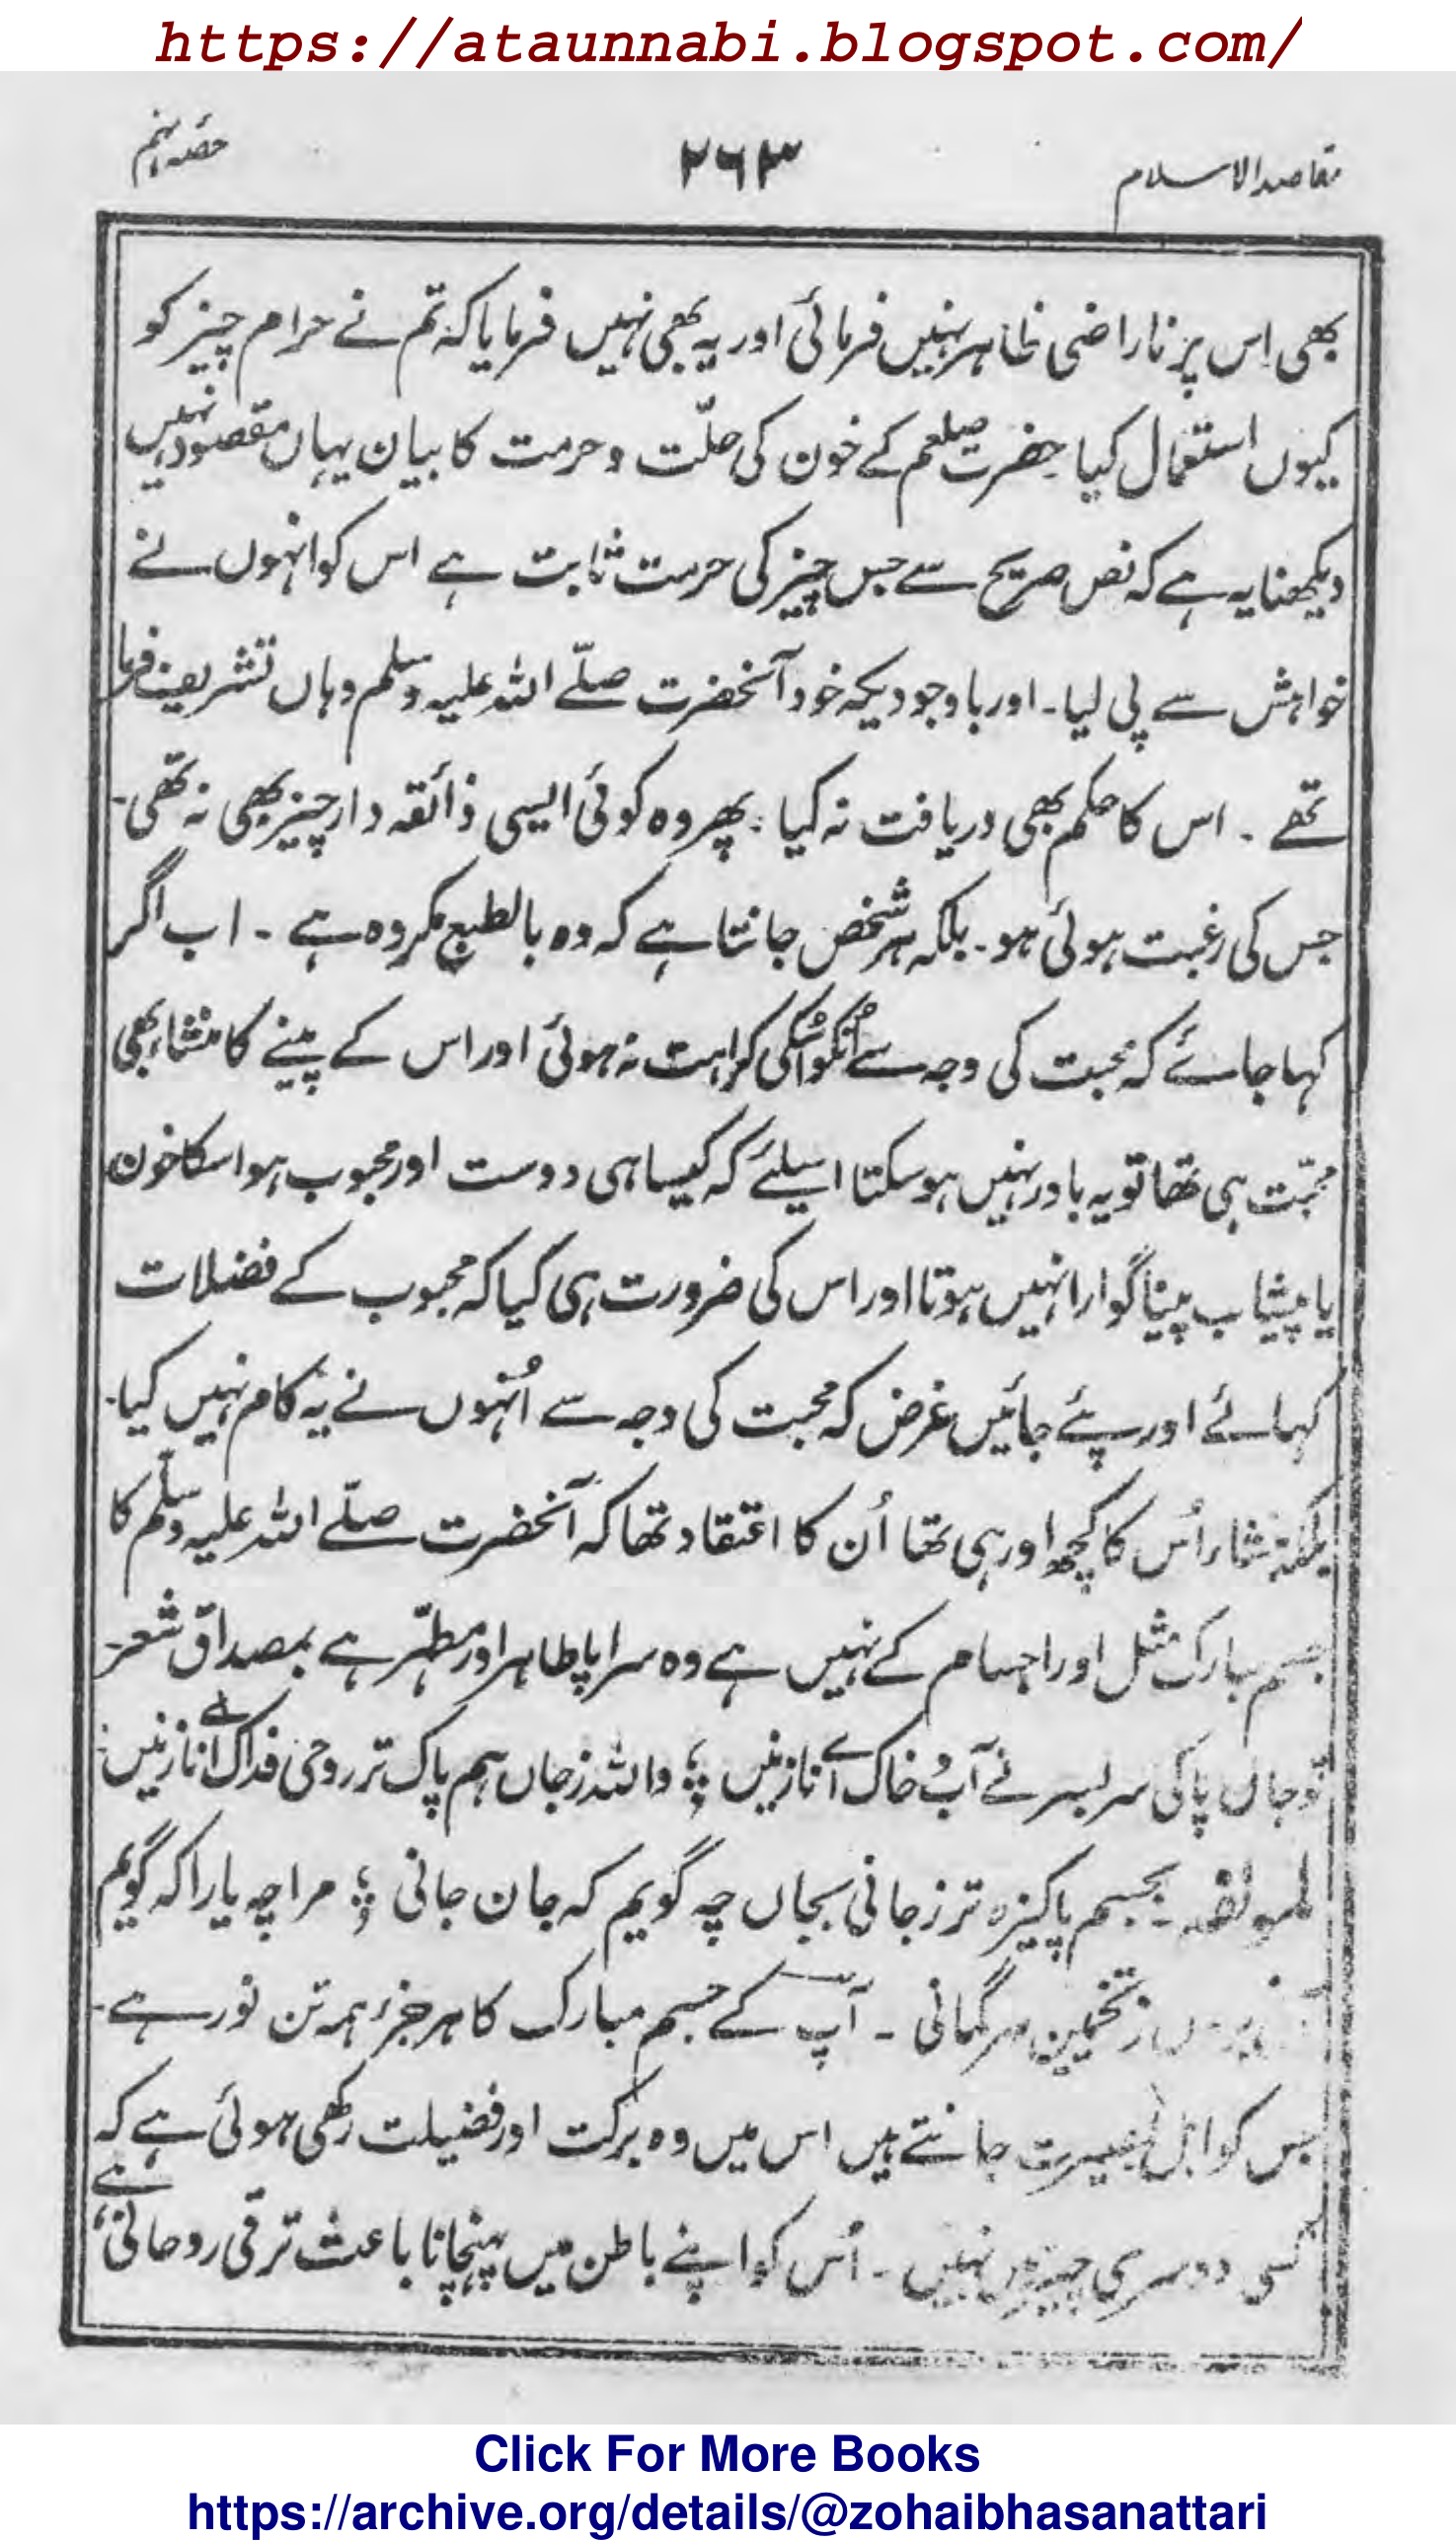 https://ataunnabi.blogspot.com/
مقاصد الاسلام ۲۶۳ حصہ نہم
بھی اس پر ناراضی ظاہر نہیں فرمائی اور یہ بھی نہیں فرمایا کہ تم نے حرام چیز کو
کیوں استعمال کیا حضرت صلعم کے خون کی حلّت و حرمت کا بیان یہاں مقصود نہیں
دیکھنا یہ ہے کہ نص صریح سے جس چیز کی حرمت ثابت ہے اس کو انہوں نے
خواہش سے پی لیا۔ اور باوجودیکہ خود آنحضرت صلّے اللہ علیہ وسلم وہاں تشریف فرما
تھے ۔ اس کا حکم بھی دریافت نہ کیا ۔ پھر وہ کوئی ایسی ذائقہ دار چیز بھی نہ تھی۔
جس کی رغبت ہوئی ہو۔ بلکہ ہر شخص جانتا ہے کہ وہ بالطبع مکروہ ہے ۔ اب اگر
کہا جائے کہ محبت کی وجہ سے اُنکو اُسکی کراہت نہ ہوئی اور اس کے پینے کا منشاء بھی
محبّت ہی تھا تو یہ باور نہیں ہو سکتا اسیلئے کہ کیسا ہی دوست اور محبوب ہو اسکا خون
یا پیشاب پینا گوارا نہیں ہوتا اور اس کی ضرورت ہی کیا کہ محبوب کے فضلات
کہائے اور پئے جائیں غرض کہ محبت کی وجہ سے اُنہوں نے یہ کام نہیں کیا۔
بلکہ منشاء اُس کا کچھ اور ہی تھا اُن کا اعتقاد تھا کہ آنحضرت صلّے اللہ علیہ وسلّم کا
جسم مبارک مثل اور اجسام کے نہیں ہے وہ سراپا طاہر اور مطہّر ہے بمصداق شعر۔
تو جاں پاکی سربسر نے آب و خاک اے نازنیں ؛ واللہ ز جاں ہم پاک تر روحی فداک اے نازنیں
لمولفہ ۔ بجسم پاکیزہ تر ز جانی بجاں چہ گویم کہ جان جانی ؛ مرا چہ یارا کہ گویم
ز تخمین ہر گمانی ۔ آپ کے جسم مبارک کا ہر جزء ہمہ تن نور ہے۔
جس کو اہل بصیرت جانتے ہیں اس میں وہ برکت اور فضیلت رکھی ہوئی ہے کہ
کسی دوسری چیز میں نہیں ۔ اُس کو اپنے باطن میں پہنچانا باعث ترقی روحانی ہے
Click For More Books
https://archive.org/details/@zohaibhasanattari